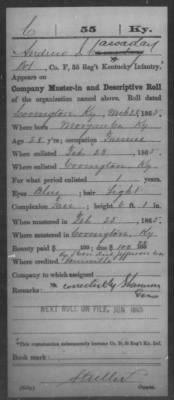 C 55 Ky.
Andrew J.
Pvt, Co. F, 55 Reg't Kentucky Infantry.
Appears on
Company Muster-in and Descriptive Roll
of the organization named above. Roll dated
Covington Ky. 1865.
Where born Morgan Co Ky
Age 28 y'rs; occupation Farmer
When enlisted Feb 25, 1865.
Where enlisted Covington Ky.
For what period enlisted 1 years.
Eyes Blue; hair Light
Complexion Fair; height 6 ft. 1 in.
When mustered in Feb 25, 1865.
Where mustered in Covington, Ky
Bounty paid $ 100; due $ 100
Where credited
Company to which assigned
Remarks:
NEXT ROLL ON FILE, JUN 1865
*This organization subsequently became Co. F, 55 Reg't Ky. Inf.
Book mark:
Copyist.